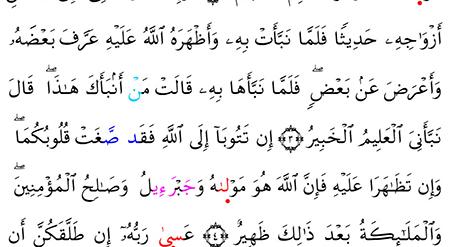 أَزْوَٰجِهِۦ حَدِيثًا فَلَمَّا نَبَّأَتْ بِهِۦ وَأَظْهَرَهُ ٱللَّهُ عَلَيْهِ عَرَّفَ بَعْضَهُۥ
وَأَعْرَضَ عَنۢ بَعْضٍۖ فَلَمَّا نَبَّأَهَا بِهِۦ قَالَتْ مَنْ أَنۢبَأَكَ هَٰذَاۖ قَالَ
نَبَّأَنِىَ ٱلْعَلِيمُ ٱلْخَبِيرُ ﴿٣﴾ إِن تَتُوبَآ إِلَى ٱللَّهِ فَقَد صَّغَتْ قُلُوبُكُمَاۖ
وَإِن تَظَٰهَرَا عَلَيْهِ فَإِنَّ ٱللَّهَ هُوَ مَوْلَىٰهُ وَجَبْرَءِيلُ وَصَٰلِحُ ٱلْمُؤْمِنِينَۖ
وَٱلْمَلَٰٓئِكَةُ بَعْدَ ذَٰلِكَ ظَهِيرٌ ﴿٤﴾ عَسَىٰ رَبُّهُۥٓ إِن طَلَّقَكُنَّ أَن